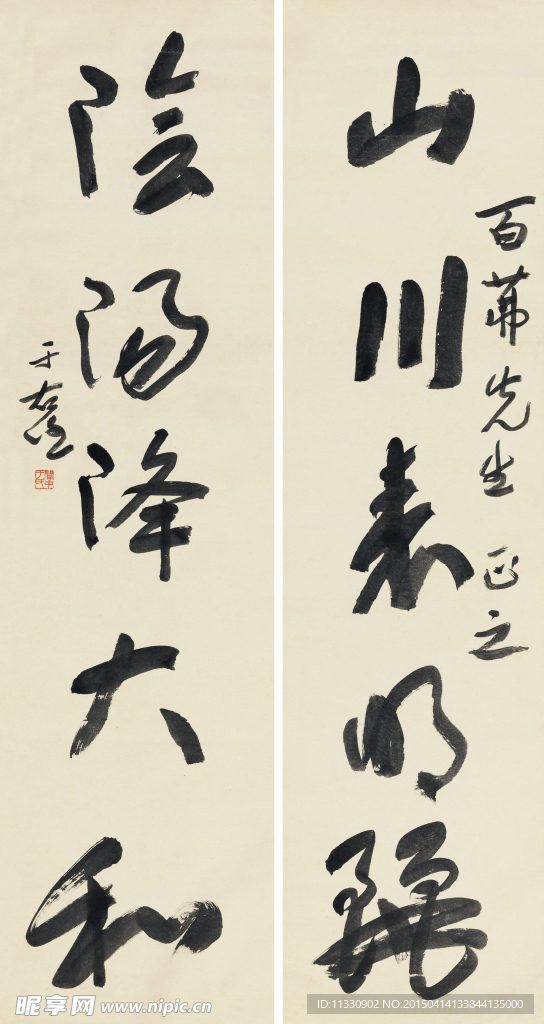 百茀先生正之
山川表明麗
陰陽降大和
于右任
關中于氏
昵享网 www.nipic.cn
ID:11330902 NO:20150414133844135000